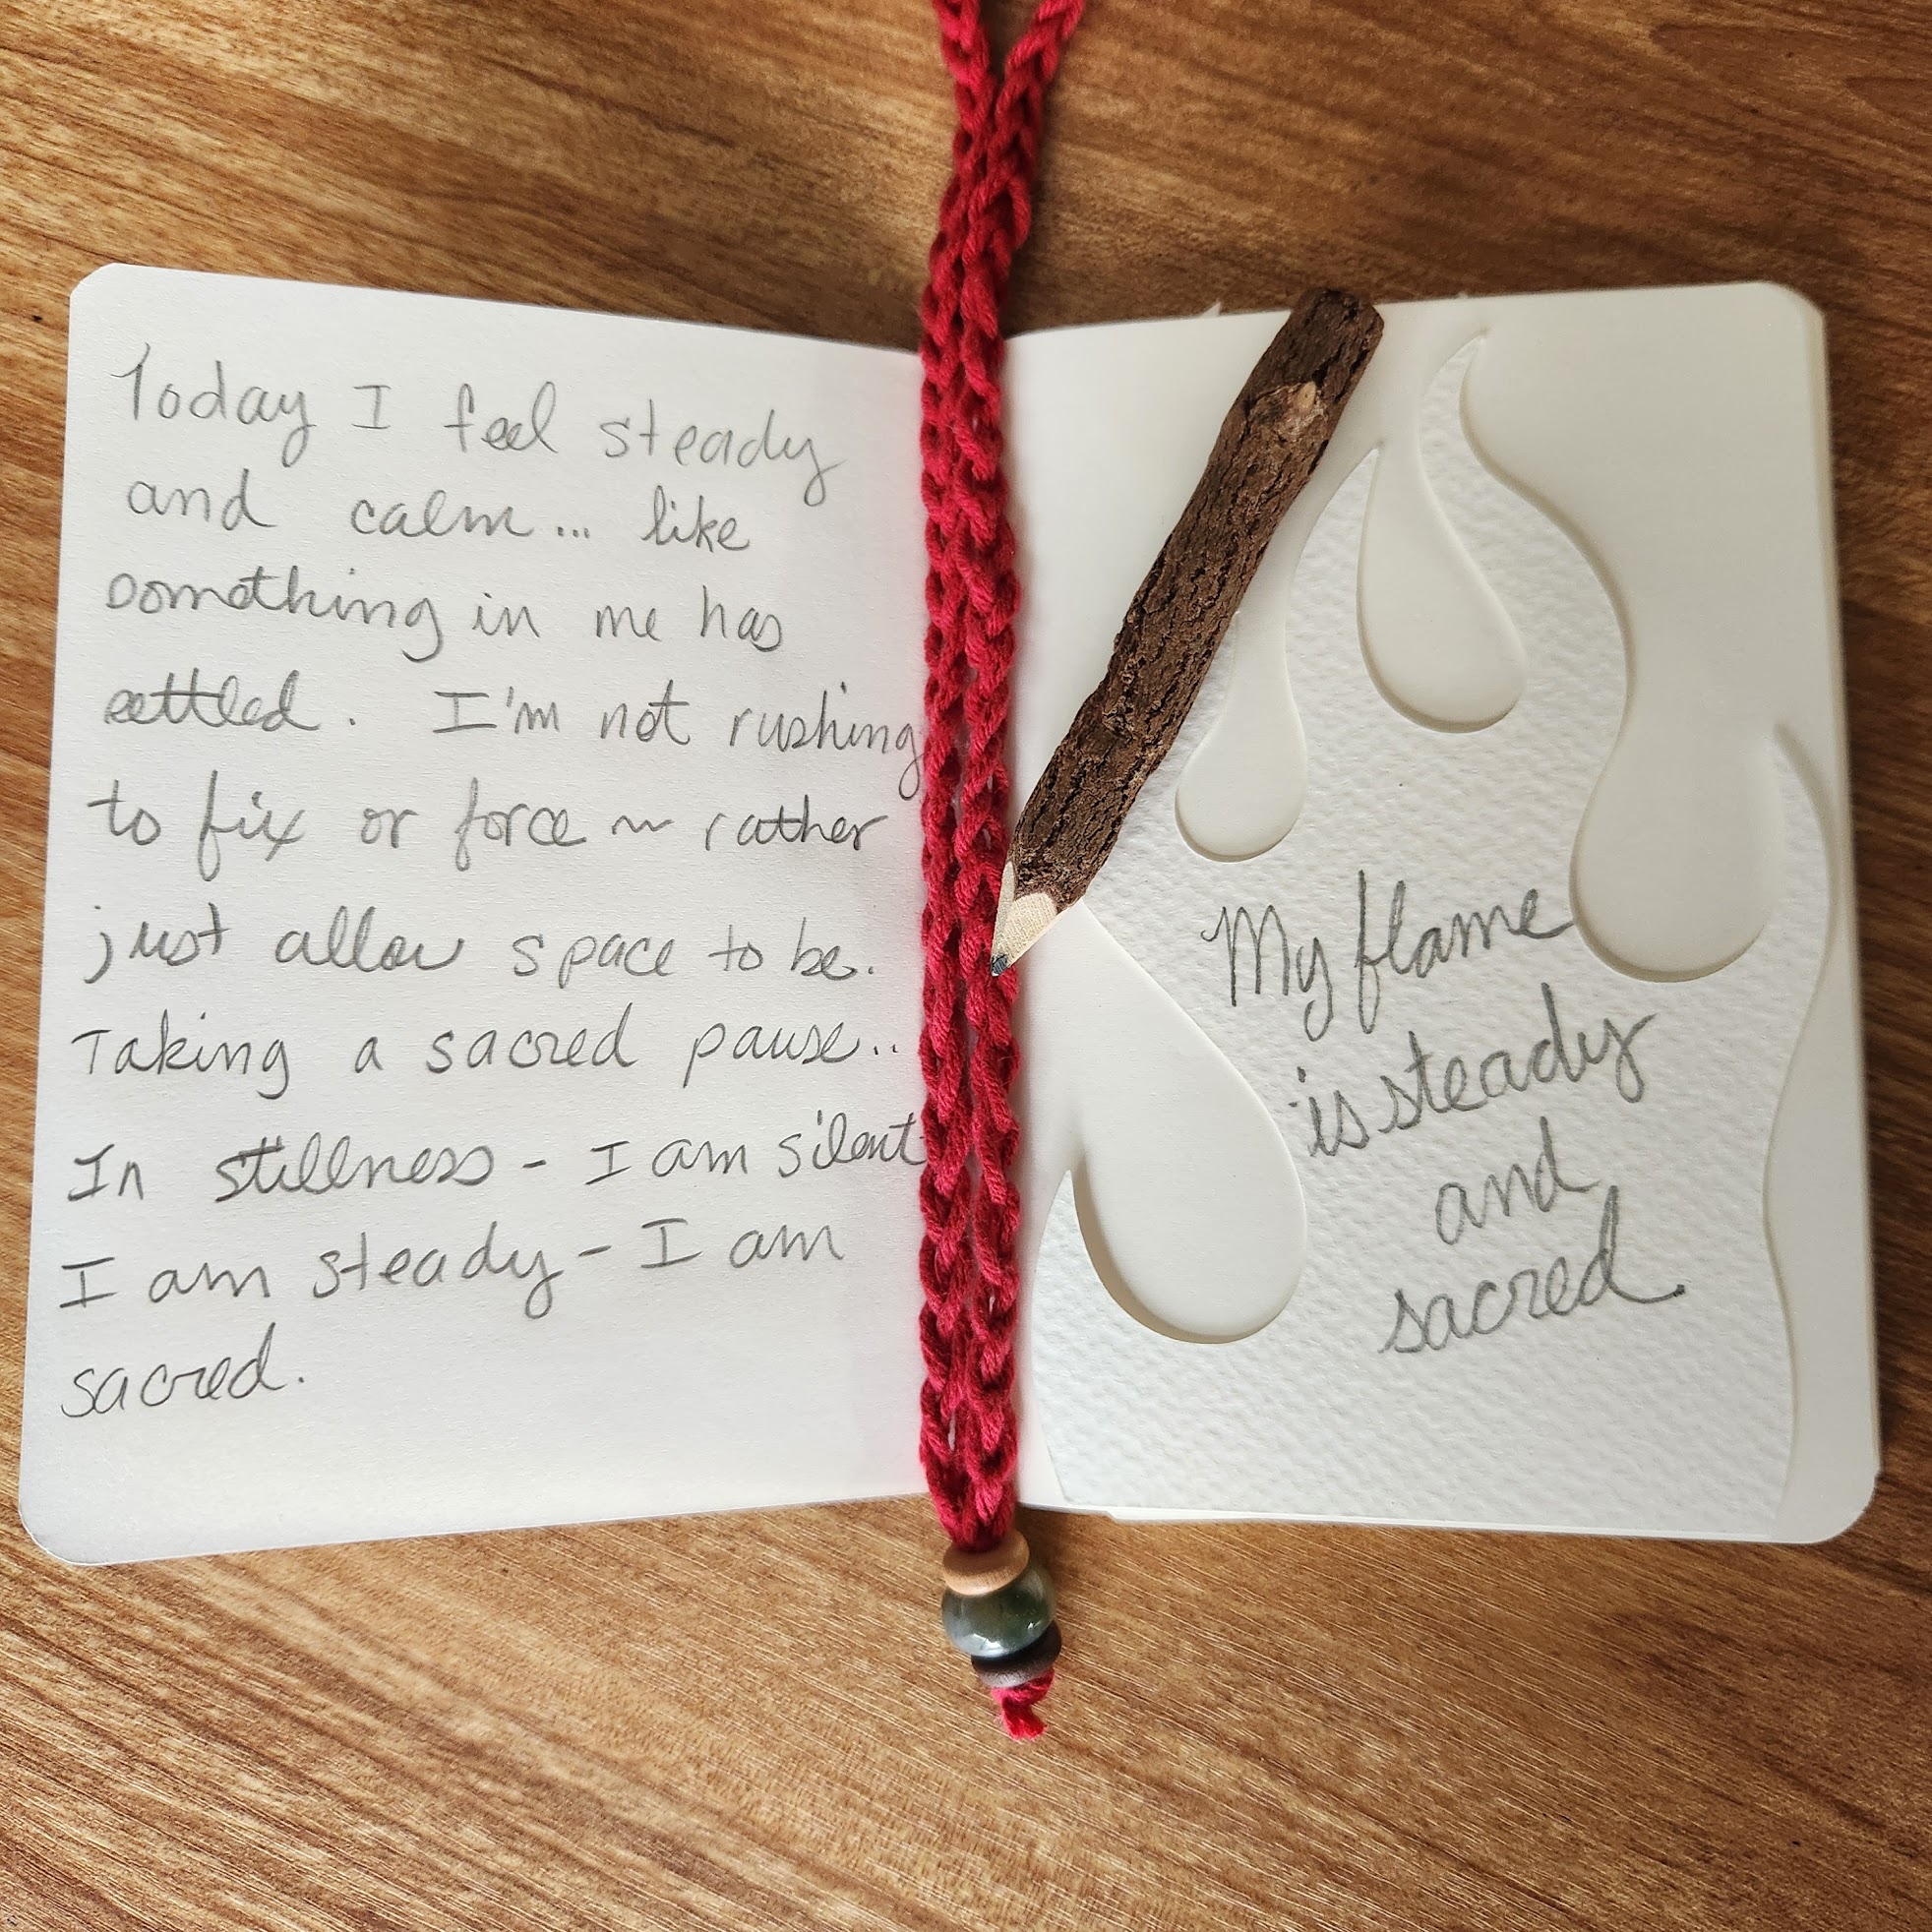 Today I feel steady
and calm... like
something in me has
settled. I'm not rushing
to fix or force ~ rather
just allow space to be.
Taking a sacred pause..
In stillness - I am silent
I am steady - I am
sacred.
My flame
is steady
and
sacred.